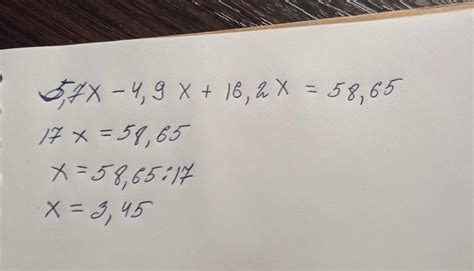 5,7x - 4,9x + 16,2x = 58,65
17x = 58,65
x = 58,65:17
x = 3,45